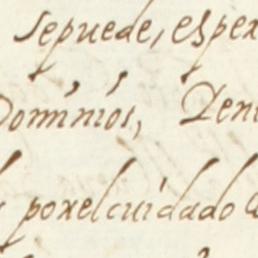 sepuede, espex
Dominios,
porelcuidado